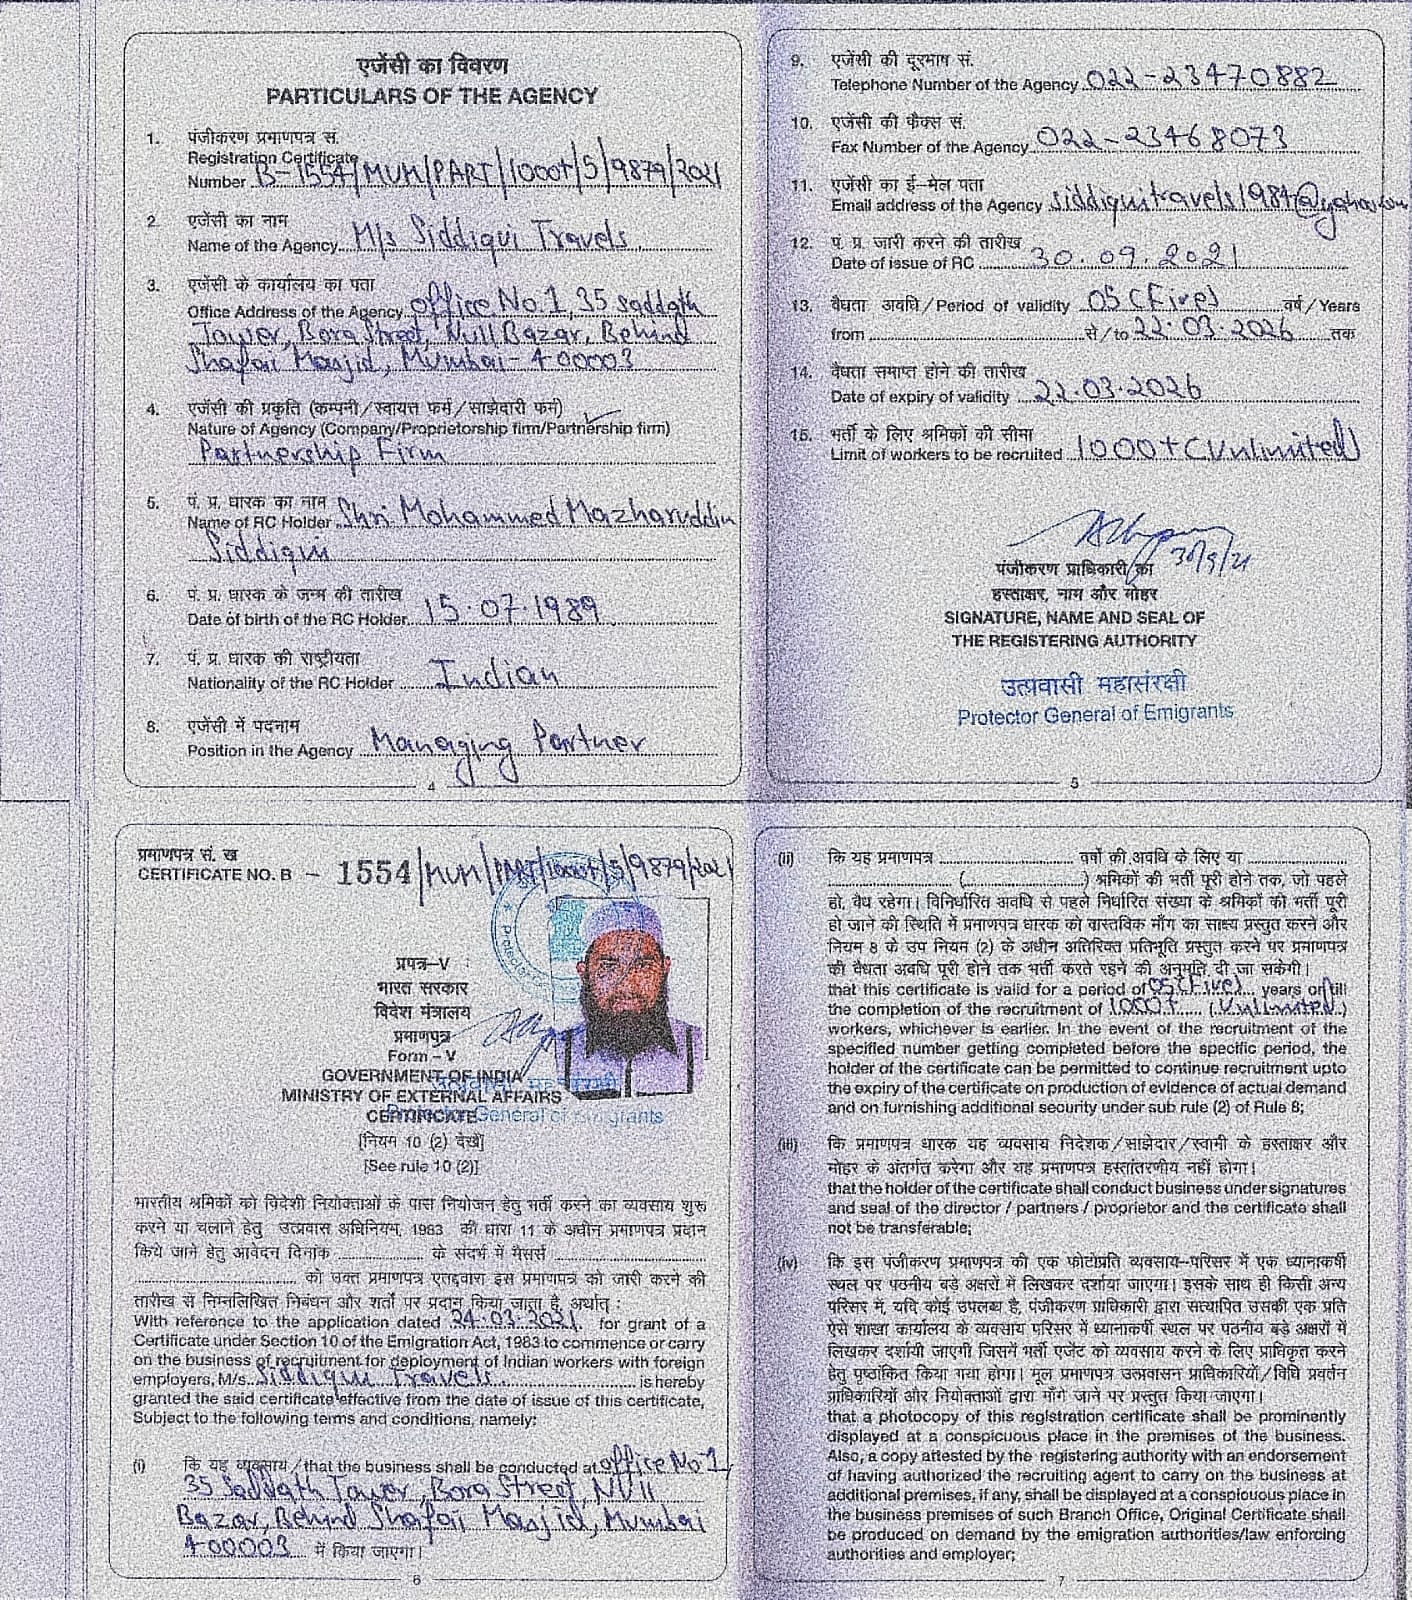 एजेंसी का विवरण
PARTICULARS OF THE AGENCY
1. पंजीकरण प्रमाणपत्र सं.
Registration Certificate
Number B-1554/MUM/PART/1000+/5/9879/2021
2. एजेंसी का नाम
Name of the Agency M/s Siddiqui Travels
3. एजेंसी के कार्यालय का पता
Office Address of the Agency office No.1, 35 Saddath
Tower, Bora Street, Null Bazar, Behind
Shafai Masjid, Mumbai-400003
4. एजेंसी की प्रकृति (कम्पनी/स्वायत्त फर्म/साझेदारी फर्म)
Nature of Agency (Company/Proprietorship firm/Partnership firm)
Partnership Firm
5. पं. प्र. धारक का नाम
Name of RC Holder Shri Mohammed Mazharuddin
Siddiqui
6. पं. प्र. धारक के जन्म की तारीख
Date of birth of the RC Holder 15.07.1989
7. पं. प्र. धारक की राष्ट्रीयता
Nationality of the RC Holder Indian
8. एजेंसी में पदनाम
Position in the Agency Managing Partner
4
9. एजेंसी की दूरभाष सं.
Telephone Number of the Agency 022-23470882
10. एजेंसी की फैक्स सं.
Fax Number of the Agency 022-23468073
11. एजेंसी का ई-मेल पता
Email address of the Agency siddiquitravels1984@yahoo.com
12. पं. प्र. जारी करने की तारीख
Date of issue of RC 30.09.2021
13. वैधता अवधि/Period of validity 05 (Five) वर्ष/Years
from से/to 22.03.2026 तक
14. वैधता समाप्त होने की तारीख
Date of expiry of validity 22.03.2026
15. भर्ती के लिए श्रमिकों की सीमा
Limit of workers to be recruited 1000+ (Unlimited)
30/9/21
पंजीकरण प्राधिकारी का
हस्ताक्षर, नाम और मोहर
SIGNATURE, NAME AND SEAL OF
THE REGISTERING AUTHORITY
उत्प्रवासी महासंरक्षी
Protector General of Emigrants
5
प्रमाणपत्र सं. ख
CERTIFICATE NO. B - 1554/MUM/PART/1000+/5/9879/2021
प्रपत्र-V
भारत सरकार
विदेश मंत्रालय
प्रमाणपत्र
Form - V
GOVERNMENT OF INDIA
MINISTRY OF EXTERNAL AFFAIRS
CERTIFICATE
Protector General of Emigrants
[नियम 10 (2) देखें]
[See rule 10 (2)]
भारतीय श्रमिकों को विदेशी नियोक्ताओं के पास नियोजन हेतु भर्ती करने का व्यवसाय शुरू
करने या चलाने हेतु उत्प्रवास अधिनियम, 1983 की धारा 11 के अधीन प्रमाणपत्र प्रदान
किये जाने हेतु आवेदन दिनांक के संदर्भ में मैसर्स
को उक्त प्रमाणपत्र एतद्द्वारा इस प्रमाणपत्र को जारी करने की
तारीख से निम्नलिखित निबंधन और शर्तों पर प्रदान किया जाता है, अर्थात् :
With reference to the application dated 24.03.2021 for grant of a
Certificate under Section 10 of the Emigration Act, 1983 to commence or carry
on the business of recruitment for deployment of Indian workers with foreign
employers, M/s. Siddiqui Travels is hereby
granted the said certificate effective from the date of issue of this certificate,
Subject to the following terms and conditions, namely:
(i) कि यह व्यवसाय/that the business shall be conducted at office No 1,
35 Saddath Tower, Bora Street, Null
Bazar, Behind Shafaii Masjid, Mumbai
400003 में किया जाएगा।
6
(ii) कि यह प्रमाणपत्र वर्षों की अवधि के लिए या
( ) श्रमिकों की भर्ती पूरी होने तक, जो पहले
हो, वैध रहेगा। विनिर्धारित अवधि से पहले निर्धारित संख्या के श्रमिकों की भर्ती पूरी
हो जाने की स्थिति में प्रमाणपत्र धारक को वास्तविक माँग का साक्ष्य प्रस्तुत करने और
नियम 8 के उप नियम (2) के अधीन अतिरिक्त प्रतिभूति प्रस्तुत करने पर प्रमाणपत्र
की वैधता अवधि पूरी होने तक भर्ती करते रहने की अनुमति दी जा सकेगी।
that this certificate is valid for a period of 05 (Five) years or till
the completion of the recruitment of 1000+ (Unlimited)
workers, whichever is earlier. In the event of the recruitment of the
specified number getting completed before the specific period, the
holder of the certificate can be permitted to continue recruitment upto
the expiry of the certificate on production of evidence of actual demand
and on furnishing additional security under sub rule (2) of Rule 8;
(iii) कि प्रमाणपत्र धारक यह व्यवसाय निदेशक/साझेदार/स्वामी के हस्ताक्षर और
मोहर के अंतर्गत करेगा और यह प्रमाणपत्र हस्तांतरणीय नहीं होगा।
that the holder of the certificate shall conduct business under signatures
and seal of the director / partners / proprietor and the certificate shall
not be transferable;
(iv) कि इस पंजीकरण प्रमाणपत्र की एक फोटोप्रति व्यवसाय-परिसर में एक ध्यानाकर्षी
स्थल पर पठनीय बड़े अक्षरों में लिखकर दर्शाया जाएगा। इसके साथ ही किसी अन्य
परिसर में, यदि कोई उपलब्ध है, पंजीकरण प्राधिकारी द्वारा सत्यापित उसकी एक प्रति
ऐसे शाखा कार्यालय के व्यवसाय परिसर में ध्यानाकर्षी स्थल पर पठनीय बड़े अक्षरों में
लिखकर दर्शायी जाएगी जिसमें भर्ती एजेंट को व्यवसाय करने के लिए प्राधिकृत करने
हेतु पृष्ठांकित किया गया होगा। मूल प्रमाणपत्र उत्प्रवासन प्राधिकारियों/विधि प्रवर्तन
प्राधिकारियों और नियोक्ताओं द्वारा माँगे जाने पर प्रस्तुत किया जाएगा।
that a photocopy of this registration certificate shall be prominently
displayed at a conspicuous place in the premises of the business.
Also, a copy attested by the registering authority with an endorsement
of having authorized the recruiting agent to carry on the business at
additional premises, if any, shall be displayed at a conspicuous place in
the business premises of such Branch Office, Original Certificate shall
be produced on demand by the emigration authorities/law enforcing
authorities and employer;
7